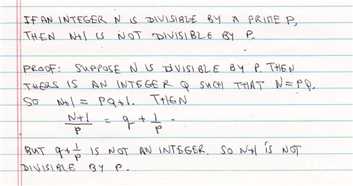 IF AN INTEGER N IS DIVISIBLE BY A PRIME P,
THEN N+1 IS NOT DIVISIBLE BY P.
PROOF: SUPPOSE N IS DIVISIBLE BY P. THEN
THERE IS AN INTEGER Q SUCH THAT N=PQ.
SO N+1 = PQ+1. THEN
N+1/P = q + 1/P.
BUT q+1/P IS NOT AN INTEGER. SO N+1 IS NOT
DIVISIBLE BY P.